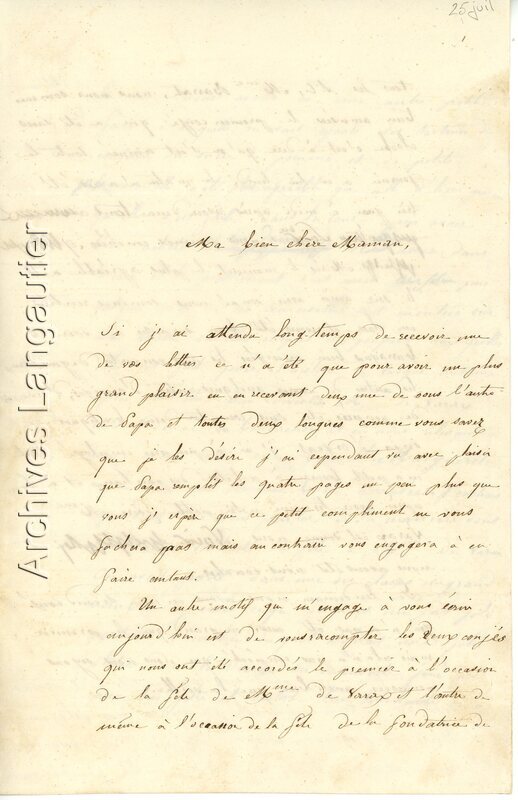 25 juil
Ma bien chère Maman,
Si j'ai attendu long-temps de recevoir une
de vos lettres ce n'a été que pour avoir un plus
grand plaisir en en recevant deux une de vous l'autre
de Papa et toutes deux longues comme vous savez
que je les désire j'ai cependant vu avec plaisir
que Papa remplit les quatre pages un peu plus que
vous j'espère que ce petit compliment ne vous
fachera pas mais au contraire vous engagera à en
faire autant.
Un autre motif qui m'engage à vous écrire
aujourd'hui est de vous racompter les deux congés
qui nous ont été accordés le premier à l'occasion
de la fête de Mme de Varax et l'autre de
même à l'occasion de la fête de la fondatrice de
Archives Langautier